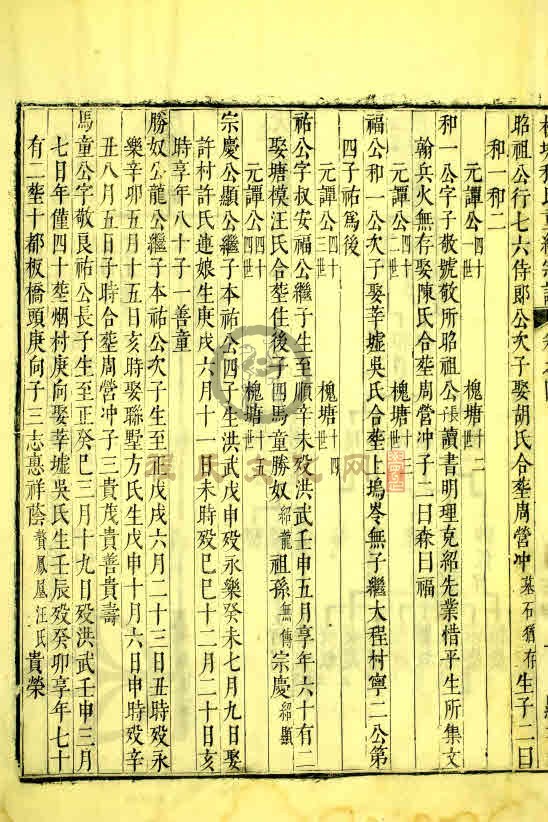 昭祖公行七六侍郎公次子娶胡氏合塟周營冲墓石猶存生子二曰
和一和二
元譚公四十一世 槐塘十二世
和一公字子敬號敬所昭祖公長子讀書明理克紹先業惜平生所集文
翰兵火無存娶陳氏合塟周營冲子二曰森曰福
元譚公四十二世 槐塘十三世
福公和一公次子娶莘墟吳氏合塟上塢岺無子繼大程村寧二公第
四子祐爲後
元譚公四十三世 槐塘十四世
祐公字叔安福公繼子生至順辛未歿洪武壬申五月享年六十有二
娶塘模汪氏合塟住後子四馬童勝奴紹龍祖孫無傳宗慶紹顯
元譚公四十四世 槐塘十五世
宗慶公顯公繼子本祐公四子生洪武戊申歿永樂癸未七月九日娶
許村許氏連娘生庚戌六月十一日未時歿巳巳十二月二十日亥
時享年八十子一善童
勝奴公龍公繼子本祐公次子生至正戊戌六月二十三日丑時歿永
樂辛卯五月十五日亥時娶聯墅方氏生戊申十月六日申時歿辛
丑八月五日子時合塟周營冲子三貴茂貴善貴壽
馬童公字敬良祐公長子生至正癸巳三月十九日歿洪武壬申三月
七日年僅四十塟烟村庚向娶莘墟吳氏生壬辰歿癸卯享年七十
有二塟十都板橋頭庚向子三志惠祥蔭贅鳳凰汪氏貴榮